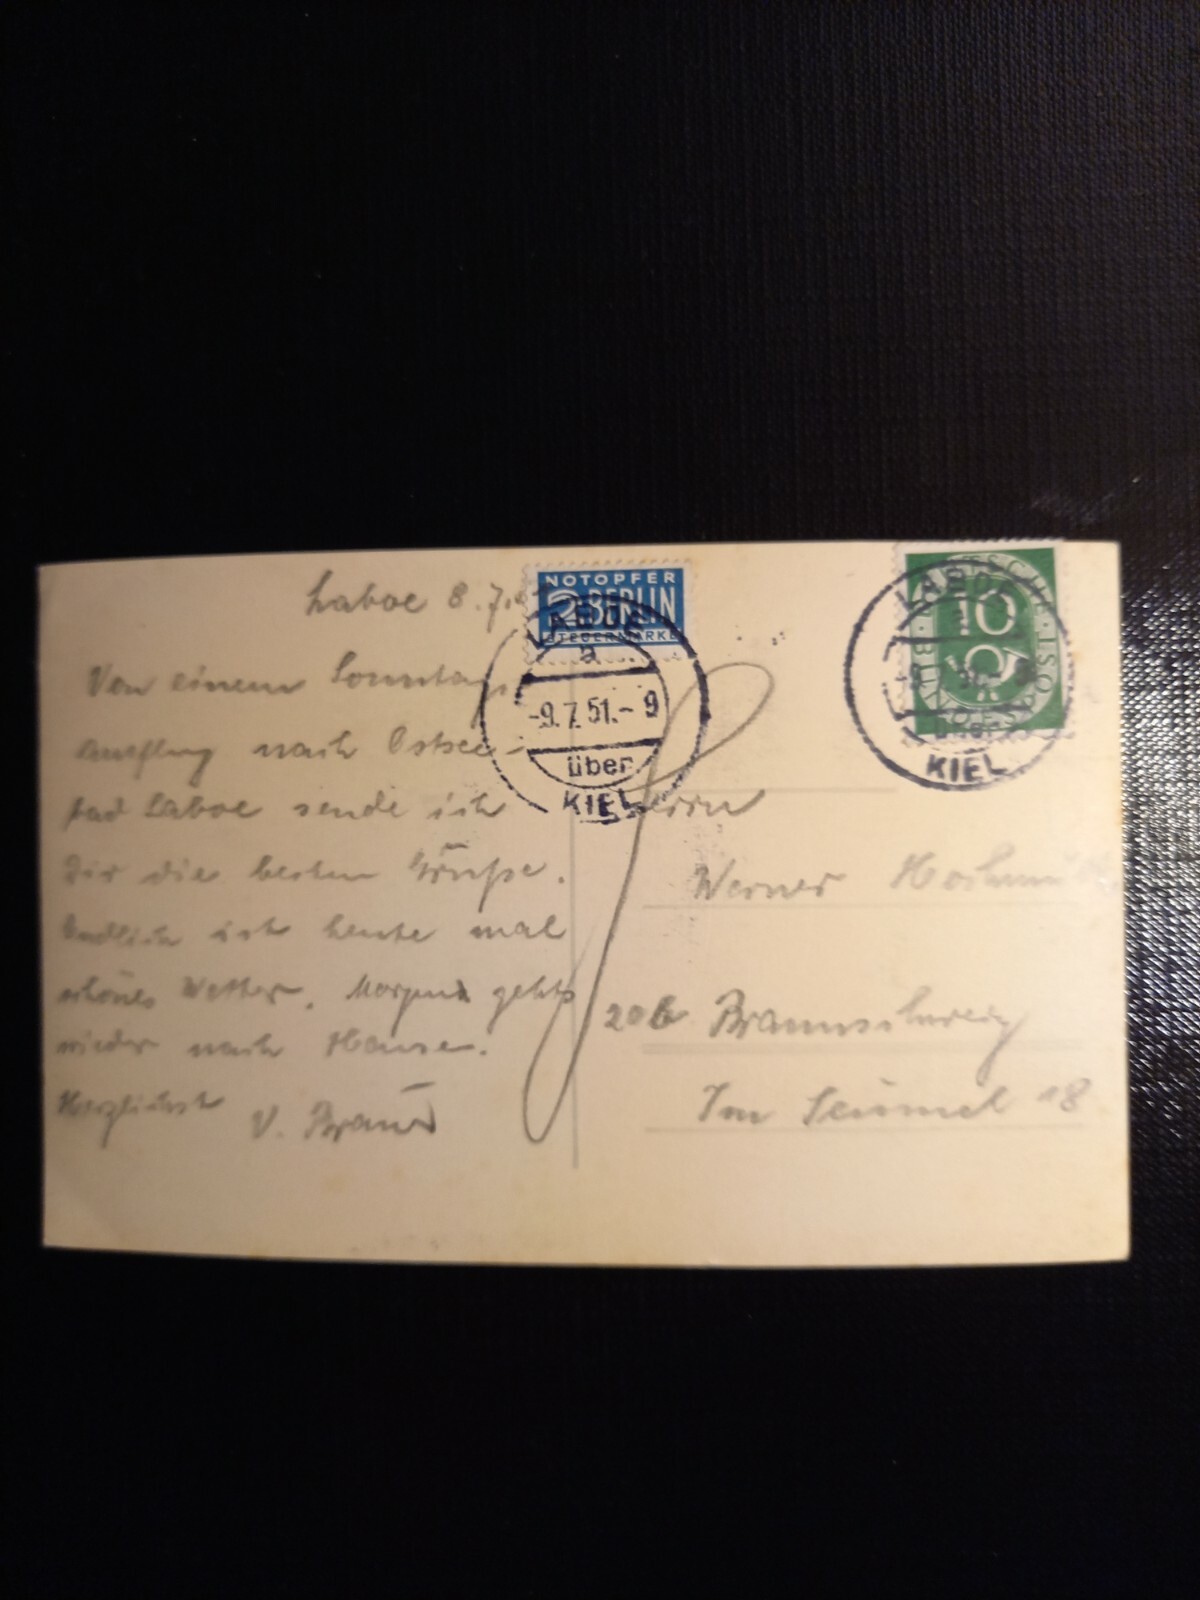 Laboe 8.7.
Von einem Sonntags
ausflug nach Ostsee-
bad Laboe sende ich
Dir die besten Grüße.
Endlich ist heute mal
schönes Wetter. Morgen gehts
wieder nach Hause.
Herzlichst V. Braun
NOTOPFER
2 BERLIN
STEUERMARKE
LABOE
a
-9.7.51.-9
über
KIEL
DEUTSCHE
BUNDESPOST
10
LABOE
über
KIEL
Herrn
Werner
20b Braunschweig
Im 18